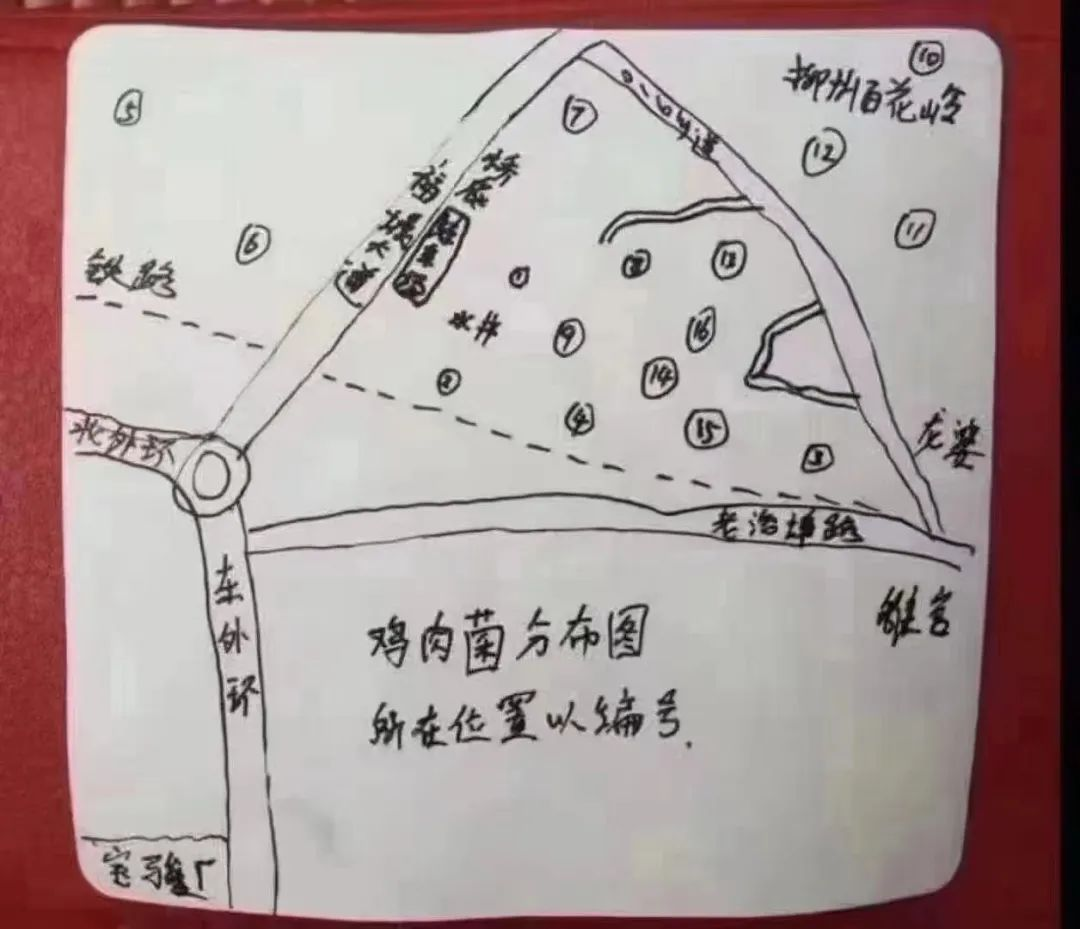 ⑩
柳州百花岭
⑤
⑦
⑫
⑪
⑥
桥底
福塘大道
驻车场
铁路
①
⑧
⑬
水井
⑨
⑯
②
⑭
④
⑮
③
龙婆
北外环
老洛埠路
东外环
雒容
鸡肉菌分布图
所在位置以编号.
宝骏厂